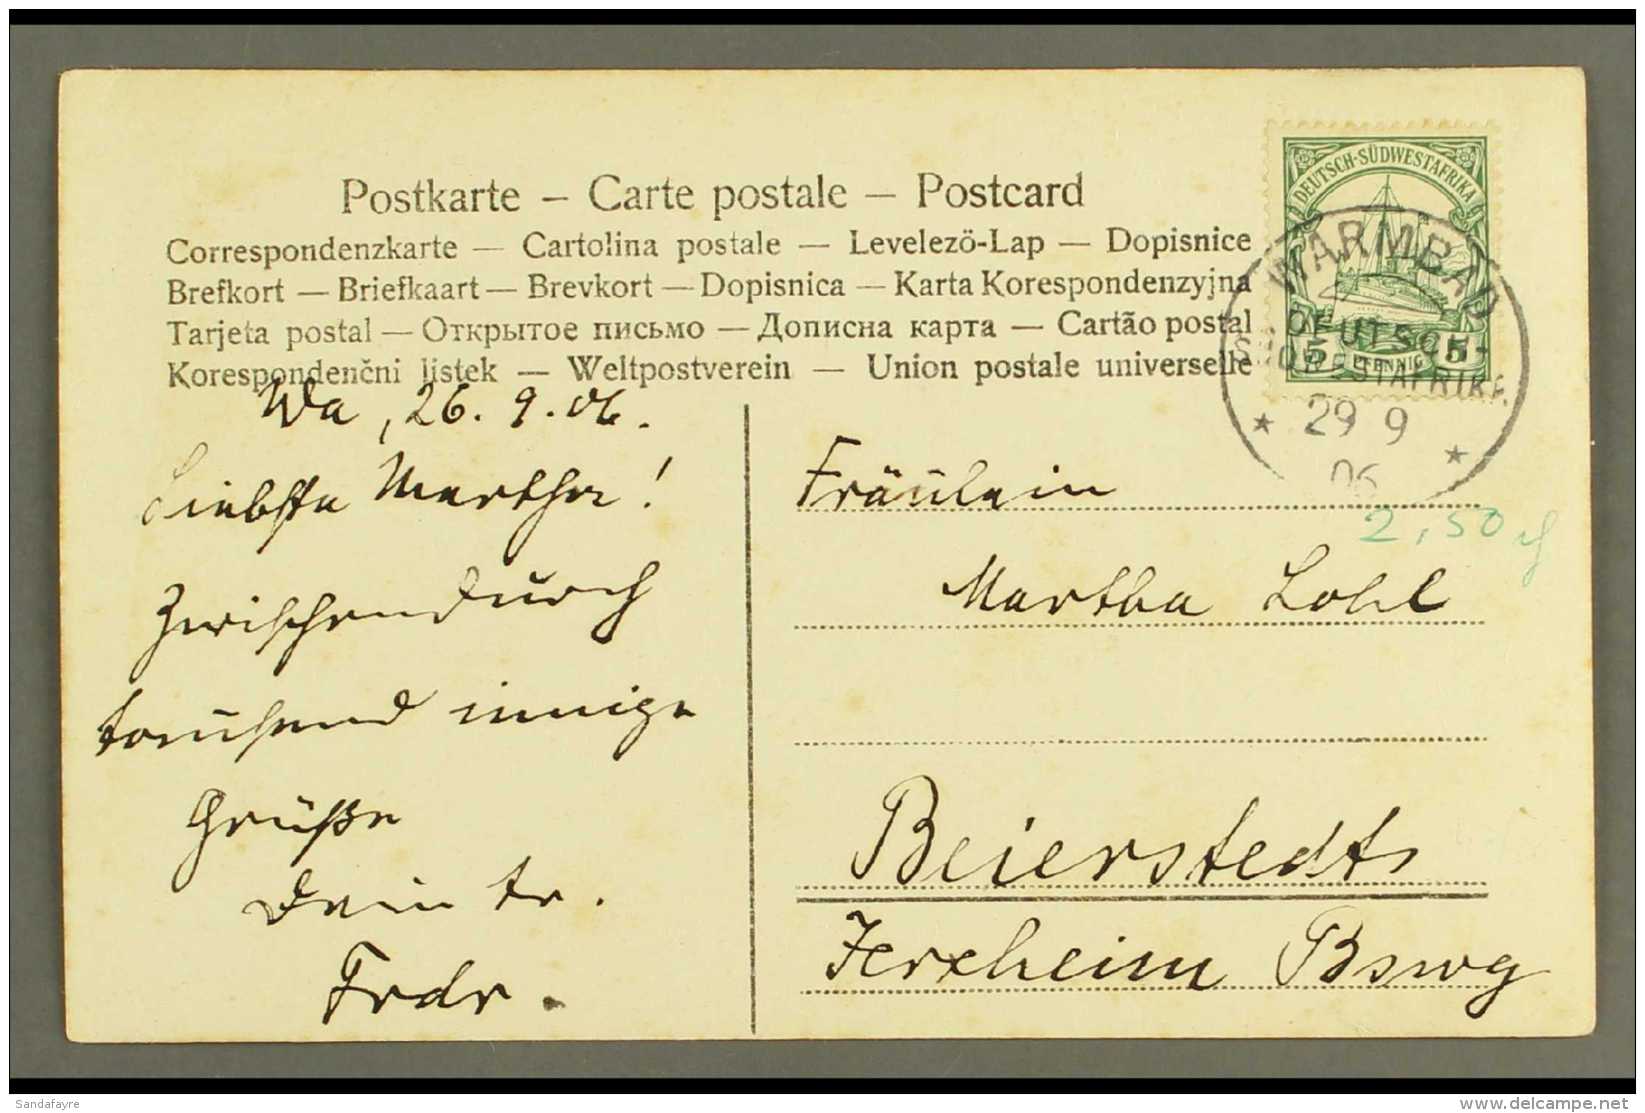 Postkarte – Carte postale – Postcard
Correspondenzkarte — Cartolina postale — Levelezö-Lap — Dopisnice
Brefkort — Briefkaart — Brevkort — Dopisnica — Karta Korespondenzyjna
Tarjeta postal — Открытое письмо — Дописна карта — Cartão postal
Korespondenční listek — Weltpostverein — Union postale universelle
DEUTSCH-SÜDWESTAFRIKA
5 PFENNIG 5
WARMBAD
DEUTSCH-
SÜDWESTAFRIKA
* 29 9 *
06
2,50
Wa, 26. 9. 06.
Liebste Martha!
Zwischendurch
tausend innige
Grüße
Dein tr.
Frdr.
Fräulein
Martha Lohl
Beierstedt
Jerxheim Bswg
Sandafayre
www.delcampe.net